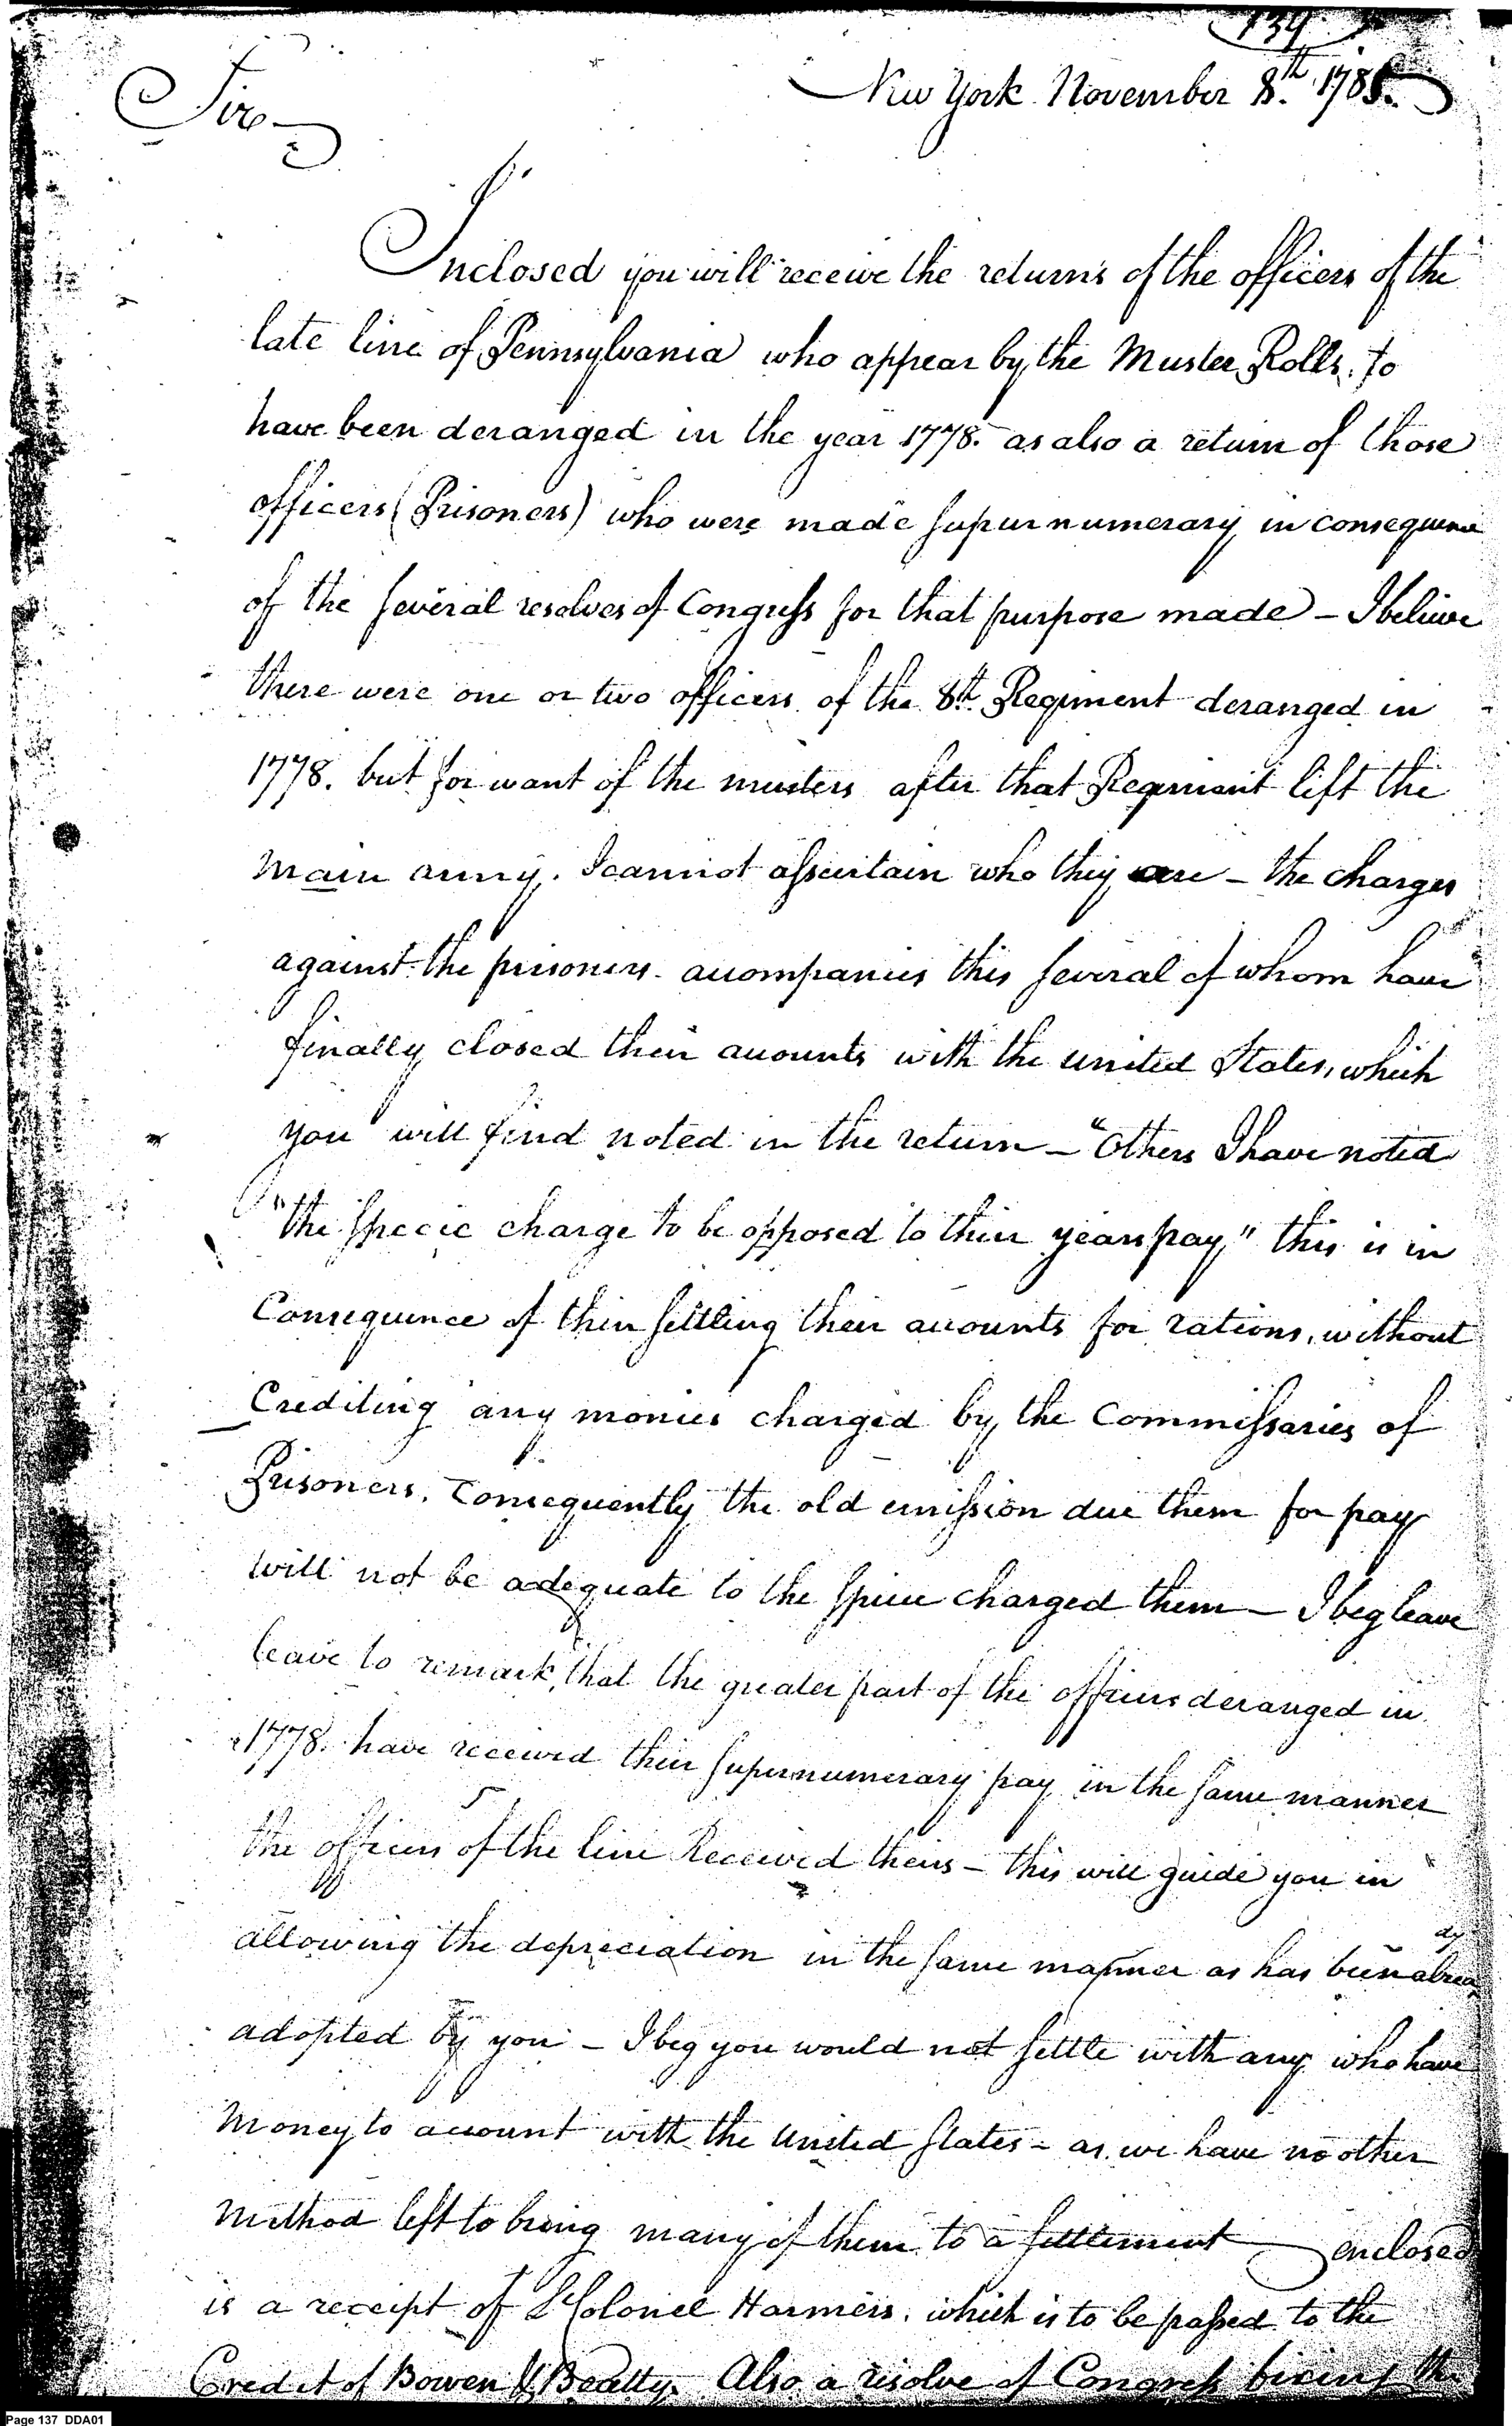 134
New York November 8.th 1785.
Sir
Inclosed you will receive the returns of the officers of the
late line of Pennsylvania who appear by the Muster Rolls. to
have been deranged in the year 1778. as also a return of those
officers (Prisoners) who were made supernumerary in consequence
of the several resolves of Congress for that purpose made – I believe
there were one or two officers of the 8th. Regiment deranged in
1778. but for want of the musters after that Regiment left the
main army. I cannot assertain who they are – the charges
against the prisoners accompanies this several of whom have
finally closed their accounts with the united States, which
you will find noted in the return – "Others I have noted
"the specie charge to be opposed to their years pay" this is in
Consequence of their settling their accounts for rations, without
Crediting any monies charged by the Commissaries of
Prisoners. Consequently the old emission due them for pay
will not be adequate to the specie charged them – I beg leave
leave to remark, that the greater part of the officers deranged in
1778. have received their supernumerary pay in the same manner
the officers of the line Received theirs – this will guide you in
allowing the depreciation in the same manner as has been already
adopted by you – I beg you would not settle with any who have
money to account with the United States – as we have no other
method left to bring many of them to a settlement – enclosed
is a receipt of L Colonel Harmers. which is to be passed to the
Credit of Bowen & Beatty. Also a resolve of Congress fixing the
Page 137 DDA01